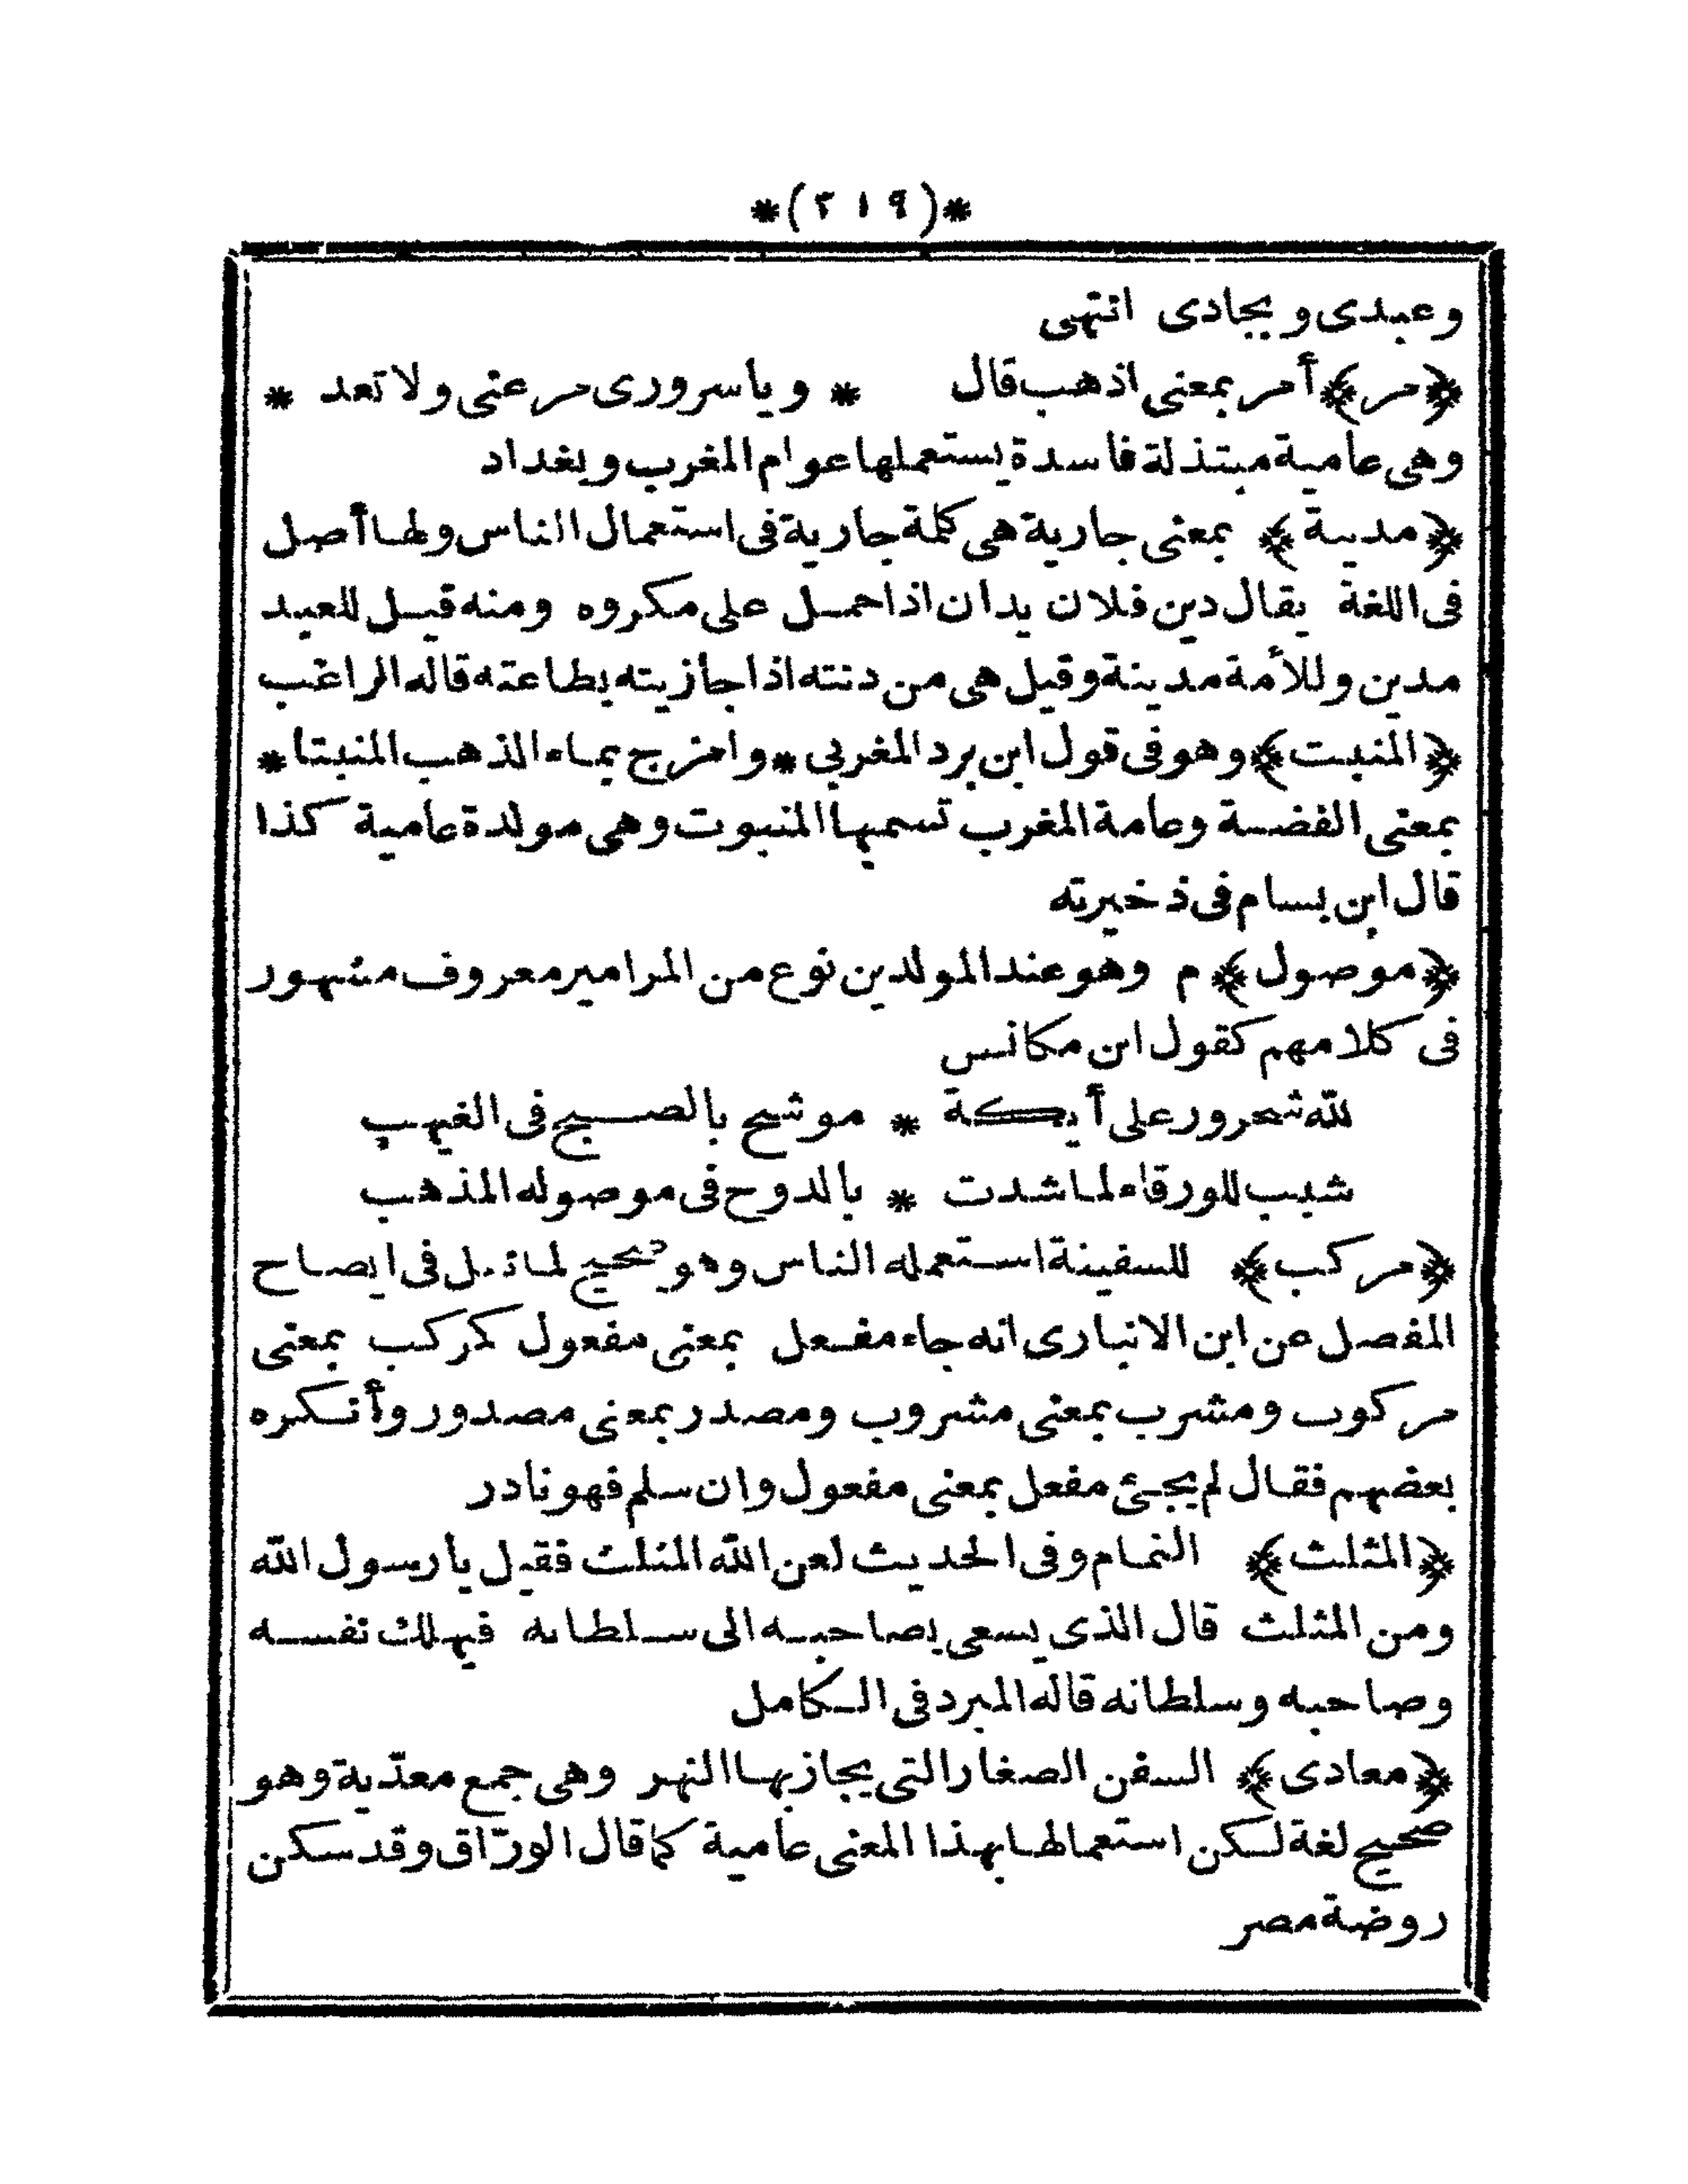 *(٢١٩)*
وعبدى وبجادى انتهى
﴿مر﴾ أمر بمعنى اذهب قال * وياسرورى مر عنى ولا تعد *
وهى عامية مبتذلة فاسدة يستعملها عوام المغرب وبغداد
﴿مدينة﴾ بمعنى جارية هى كلة جارية فى استعمال الناس ولها أصل
فى اللغة يقال دين فلان يدان اذا حمل على مكروه ومنه قيل للعبد
مدين وللأمة مدينة وقيل هى من دنته اذا جازيته بطاعته قاله الراغب
﴿المنبت﴾ وهو فى قول ابن برد المغربى * وامزج بماء الذهب المنبتا *
بمعنى الفضة وعامة المغرب تسميها المنبوت وهى مولدة عامية كذا
قال ابن بسام فى ذخيرته
﴿موصول﴾ م وهو عند المولدين نوع من المزامير معروف مشهور
فى كلامهم كقول ابن مكانس
لله شحرور على أيكة * موشح بالصبح فى الغيهب
شبب للورقاء لما شدت * بالدوح فى موصوله المذهب
﴿مركب﴾ للسفينة استعمله الناس وهو صحيح لما نقل فى ايضاح
المفصل عن ابن الانبارى انه جاء مفعل بمعنى مفعول كمركب بمعنى
مركوب ومشرب بمعنى مشروب ومصدر بمعنى مصدور وأنكره
بعضهم فقال لم يجئ مفعل بمعنى مفعول وان سلم فهو نادر
﴿المثلث﴾ النمام وفى الحديث لعن الله المثلث فقيل يا رسول الله
ومن المثلث قال الذى يسعى بصاحبه الى سلطانه فيهلك نفسه
وصاحبه وسلطانه قاله المبرد فى الكامل
﴿معادى﴾ السفن الصغار التى يجاز بها النهر وهى جمع معدّية وهو
صحيح لغة لكن استعمالها بهذا المعنى عامية كما قال الورّاق وقد سكن
روضة مصر